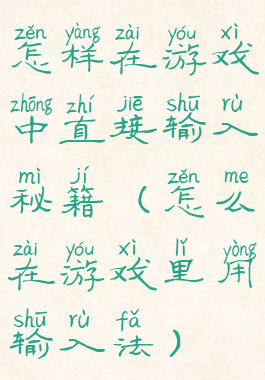 zěn yàng zài yóu xì
怎样在游戏
zhōng zhí jiē shū rù
中直接输入
mì jí zěn me
秘籍（怎么
zài yóu xì lǐ yòng
在游戏里用
shū rù fǎ
输入法）